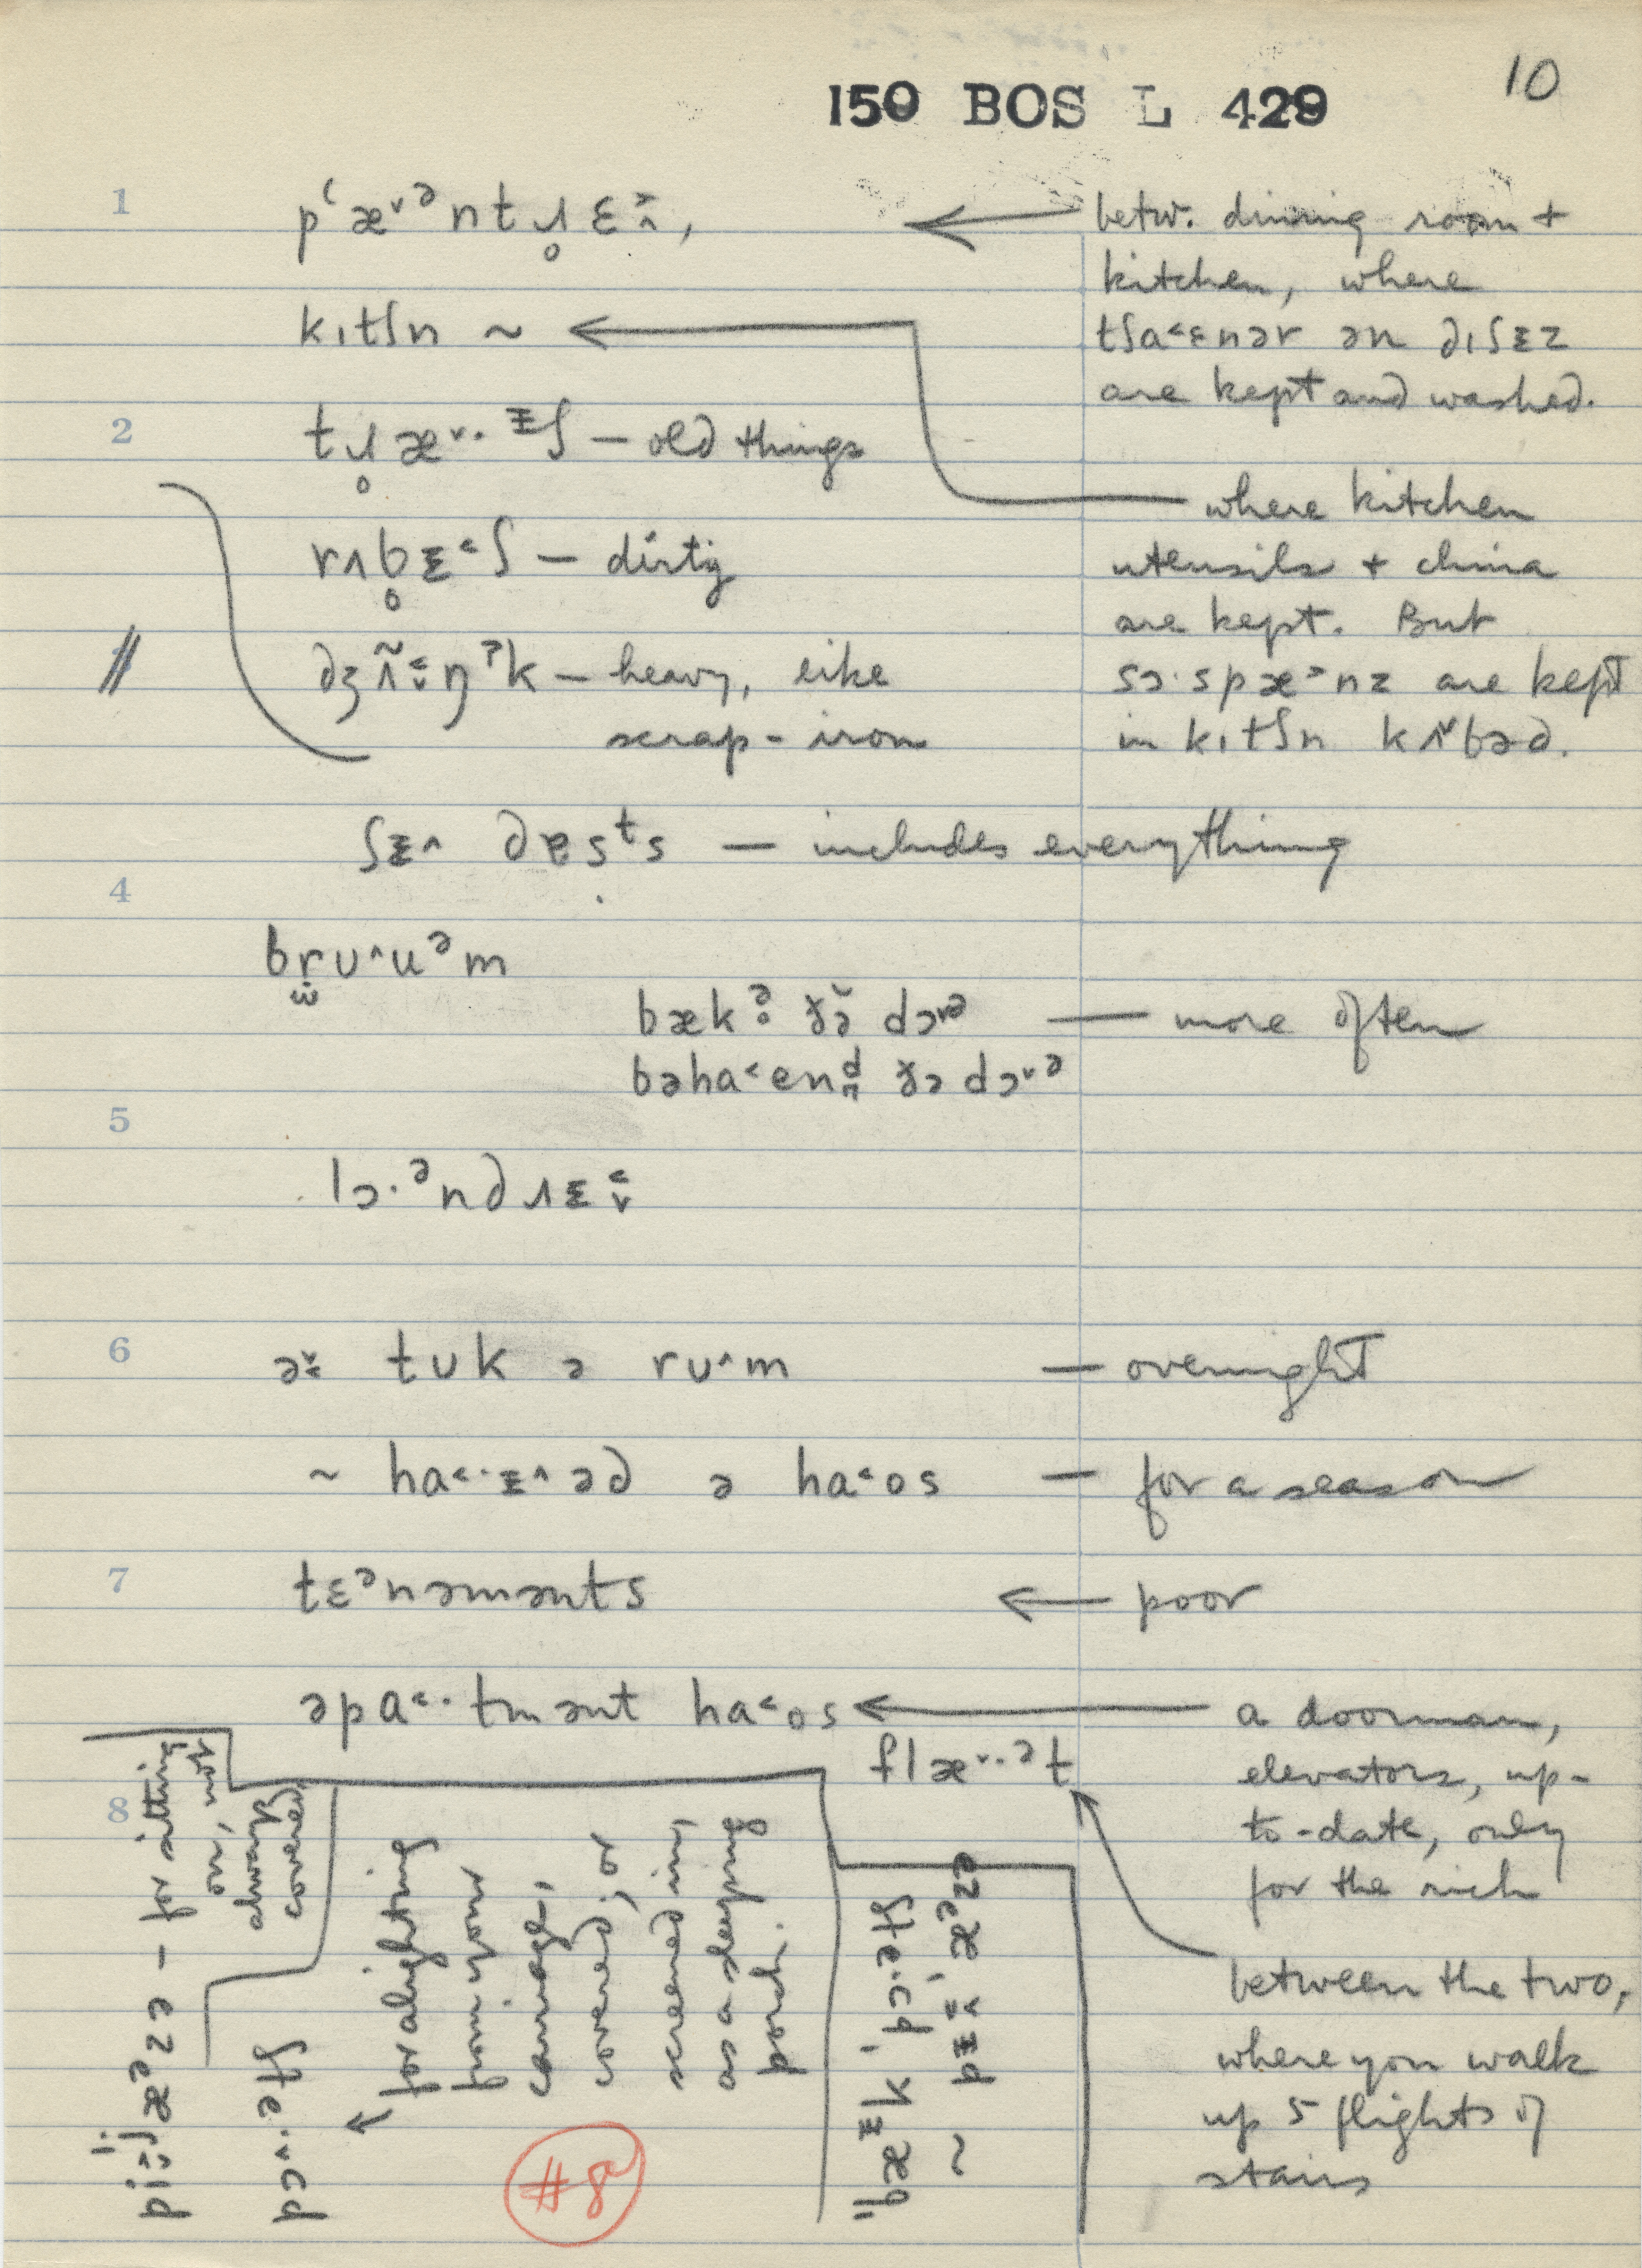 10
150 BOS L 429
1
pʻæ˅ᵊntɹ̥ɛ˃˄,
← betw. dining room +
kitchen, where
tʃa˂ɛnər ən dɪʃɪz
are kept and washed.
kɪtʃn ~ ←
where kitchen
utensils + china
are kept. But
sɔ·spæ˃nz are kept
in kɪtʃn kʌ˅bəd.
2
tɹ̥æ˅·ᵻʃ – old things
rʌb̥ᵻ˂ʃ – dirty
3
dʒʌ̃˂˅ŋˀk – heavy, like
scrap-iron
ʃᵻ˄ dɐsᵗs – includes everything
4
brʊ˄uᵊm
bækˀ ɣə̆ dɔ˅ᵊ — more often
bəha˂end ɣə dɔ˅ᵊ
5
lɔ·ᵊndɹᵻ˂˅
6
tʊk ə rʊ˄m — overnight
~ ha˂·ᵻ˄əd ə ha˂os — for a season
7
tɛᵊnəmənts ← poor
əpa˂·tmənt ha˂os ←
a doorman,
elevators, up-
to-date, only
for the rich
flæ˅·ᵊt
between the two,
where you walk
up 5 flights of
stairs
8
pi:jæᵊzə – for sitting
on, not
always
covered
pɔ˄·ətʃ
← for alighting
from your
carriage,
covered; or
screened in,
as a sleeping
porch.
"bæᵻk ˌpɔ·ətʃ
~ pᵻˈæᵊzə
#8a